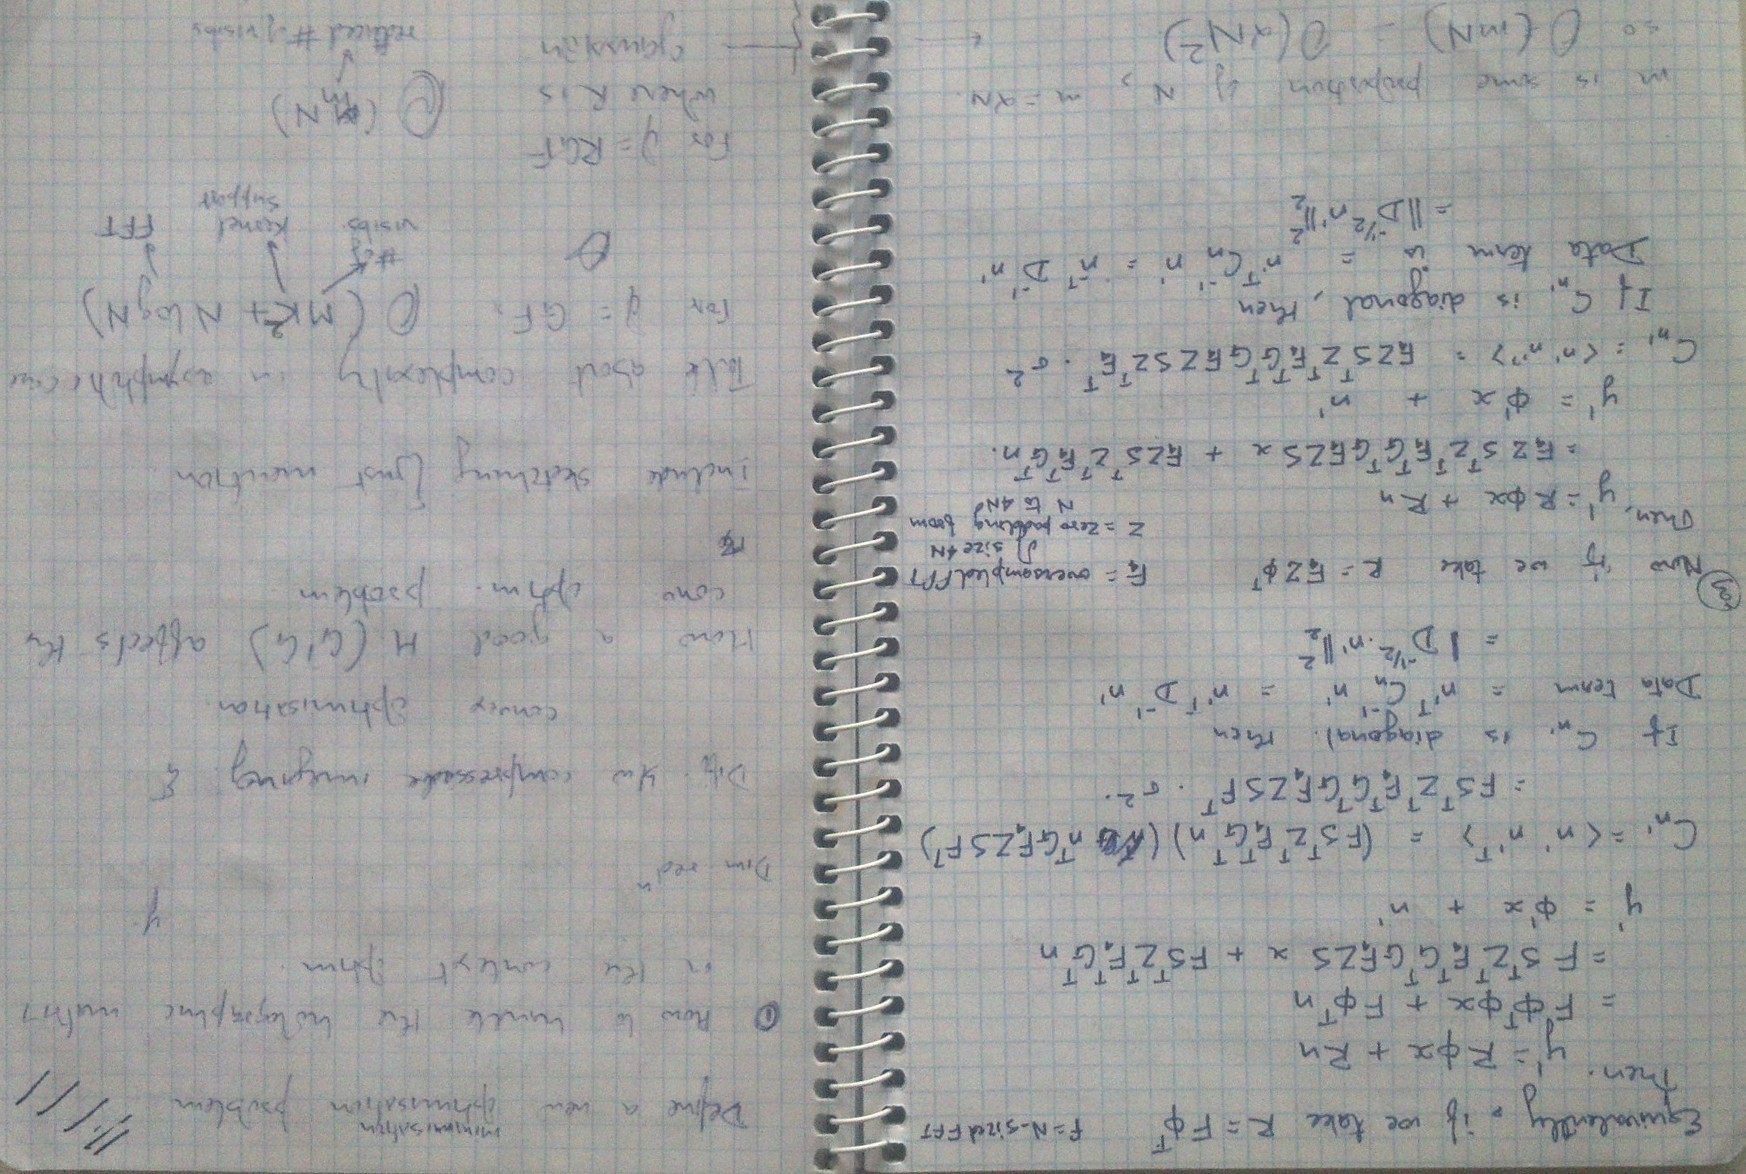 Equivalently, if we take R = Fϕᵀ    F = N-sized FFT
Then.
y' = Rϕx + Rn
= Fϕᵀϕx + Fϕᵀn
= F SᵀZᵀF₄ᵀGᵀGF₄ZS x + FSᵀZᵀF₄ᵀGᵀn
y' = ϕ'x + n'
Cₙ' = <n' n'ᵀ> = (FSᵀZᵀF₄ᵀGᵀn) (nᵀGF₄ZSFᵀ)
= FSᵀZᵀF₄ᵀGᵀGF₄ZSFᵀ . σ².
If Cₙ' is diagonal. then
Data term = n'ᵀ Cₙ⁻¹ n' = n'ᵀ D⁻¹ n'
= || D⁻¹/² . n' ||₂²
③
Now if we take R = F₄Zϕᵀ    F₄ = oversampled FFT
of size 4N
Z = Zero padding from
N to 4N
Then, y' = Rϕx + Rn
= F₄Z SᵀZᵀF₄ᵀGᵀGF₄ZS x + F₄ZSᵀZᵀF₄ᵀGᵀn.
y' = ϕ'x + n'
Cₙ' = <n' n'ᵀ> = F₄ZSᵀZᵀF₄ᵀGᵀGF₄ZSZᵀF₄ᵀ . σ²
If Cₙ' is diagonal, then
Data term is = n'ᵀCₙ⁻¹ n' = n'ᵀ D⁻¹ n'
= ||D⁻¹/² n'||₂²
m is some proportion of N, m = αN.
so O(mN) = O(αN²)
minimisation
Define a new optimisation problem
① How to handle the holographic matrix
in the context optim.
y'
Dim redⁿ
Diff. b/w compressive imaging &
convex optimisation.
How a good H (G'G) affects the
conv optim. problem
Include sketching [just mention
Talk about complexity in asymptotic case
For ϕ = GF,    O (MK² + N log N)
O    # of
visibs.    Kernel
support    FFT
For ϕ = RGF
where R is
gaussian
O (mN)
reduced # of visibs